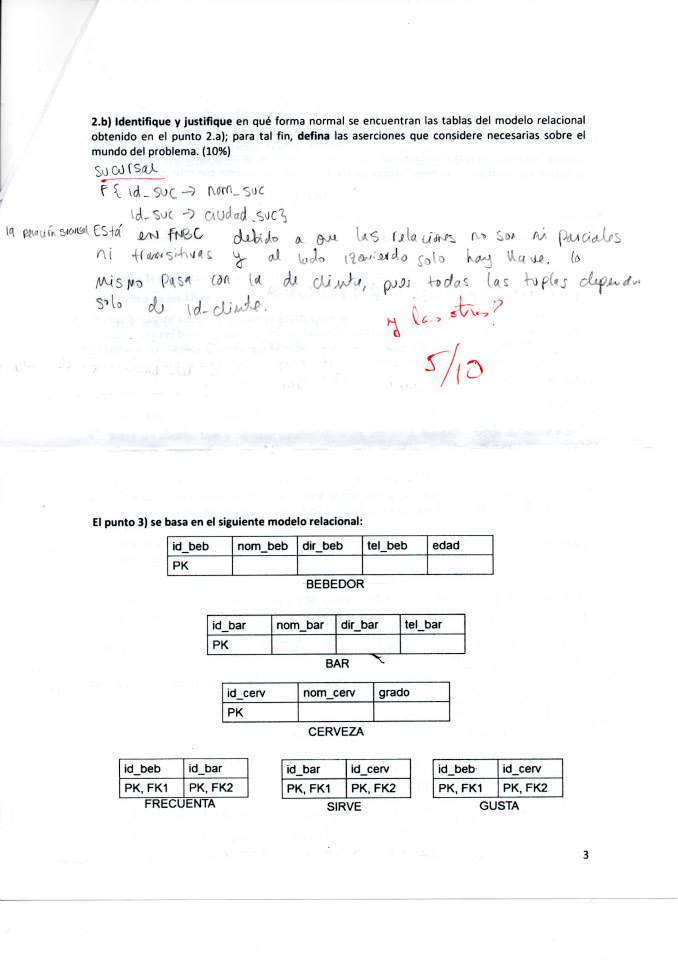 2.b) Identifique y justifique en qué forma normal se encuentran las tablas del modelo relacional
obtenido en el punto 2.a); para tal fin, defina las aserciones que considere necesarias sobre el
mundo del problema. (10%)
Sucursal
F { id_suc -> nom_suc
id_suc -> ciudad_suc}
la relación sucursal ESTá en FNBC debido a que las relaciones no son ni parciales
ni transitivas y al lado izquierdo solo hay llave. lo
mismo pasa con la de cliente, pues todas las tuplas dependen
solo de id_cliente.
y las otras?
5/10
El punto 3) se basa en el siguiente modelo relacional:
id_beb nom_beb dir_beb tel_beb edad
PK
BEBEDOR
id_bar nom_bar dir_bar tel_bar
PK
BAR
id_cerv nom_cerv grado
PK
CERVEZA
id_beb id_bar
PK, FK1 PK, FK2
FRECUENTA
id_bar id_cerv
PK, FK1 PK, FK2
SIRVE
id_beb id_cerv
PK, FK1 PK, FK2
GUSTA
3